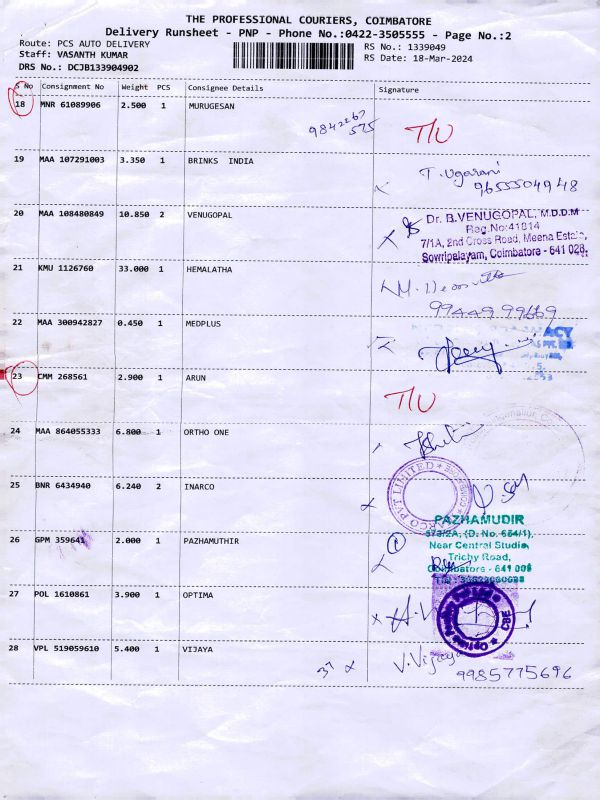 THE PROFESSIONAL COURIERS, COIMBATORE
Delivery Runsheet - PNP - Phone No.:0422-3505555 - Page No.:2
Route: PCS AUTO DELIVERY
RS No.: 1339049
Staff: VASANTH KUMAR
RS Date: 18-Mar-2024
DRS No.: DCJB133904902
S No Consignment No Weight PCS Consignee Details Signature
18 MNR 61089906 2.500 1 MURUGESAN
9842267
575
T/U
19 MAA 107291003 3.350 1 BRINKS INDIA
T. Ugarani
9655504948
20 MAA 108480849 10.850 2 VENUGOPAL
Dr. B.VENUGOPAL, M.D.D.M
Reg.No:41814
7/1A, 2nd Cross Road, Meena Estate,
Sowripalayam, Coimbatore - 641 028.
21 KMU 1126760 33.000 1 HEMALATHA
99449 99669
22 MAA 300942827 0.450 1 MEDPLUS
ACY
23 CMM 268561 2.900 1 ARUN
T/U
24 MAA 864055333 6.800 1 ORTHO ONE
25 BNR 6434940 6.240 2 INARCO
PVT LIMITED
26 GPM 359641 2.000 1 PAZHAMUTHIR
PAZHAMUDIR
Near Central Studio,
Trichy Road,
Coimbatore - 641 005
27 POL 1610861 3.900 1 OPTIMA
CBE
28 VPL 519059610 5.400 1 VIJAYA
V. Vijaya
9985775696